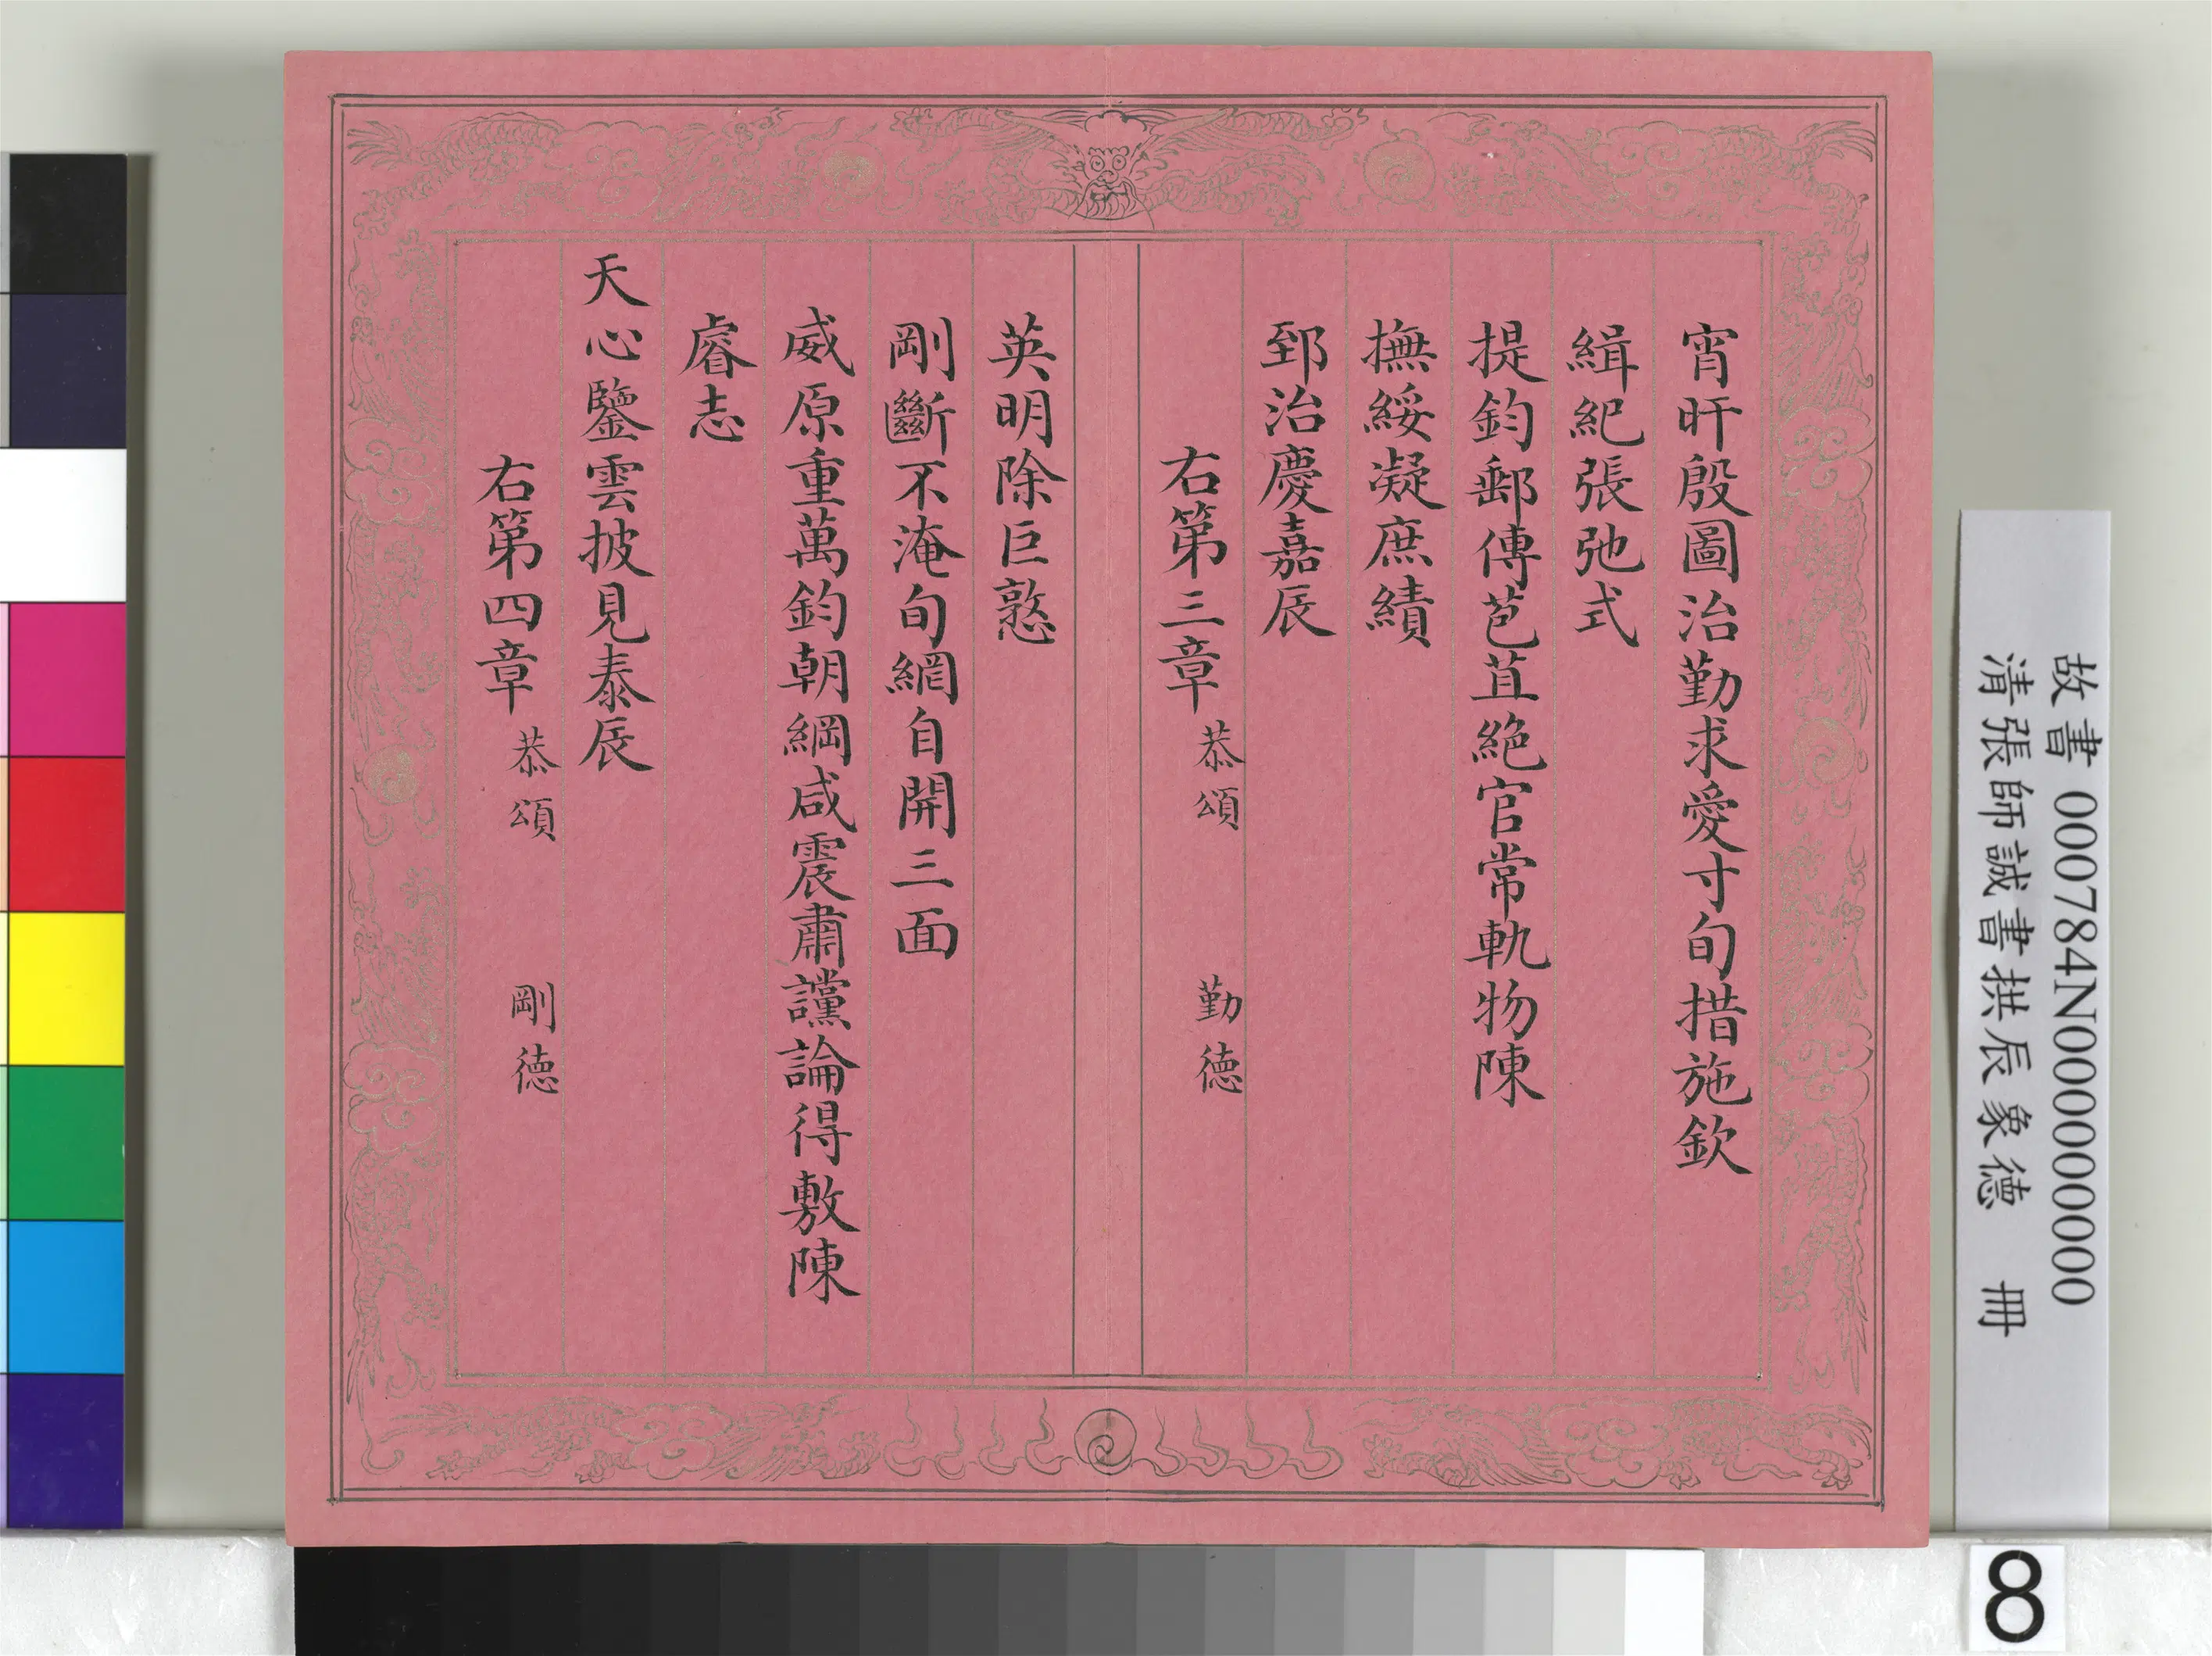 宵旰殷圖治勤求愛寸旬措施欽
緝紀張弛式
提鈞郵傳苞苴絶官常軌物陳
撫綏凝庶績
郅治慶嘉辰
右第三章 恭頌 勤德
英明除巨憝
剛斷不淹旬網自開三面
威原重萬鈞朝綱咸震肅讜論得敷陳
睿志
天心鑒雲披見泰辰
右第四章 恭頌 剛德
故書 000784N000000000
清張師誠書拱辰象德 冊
8